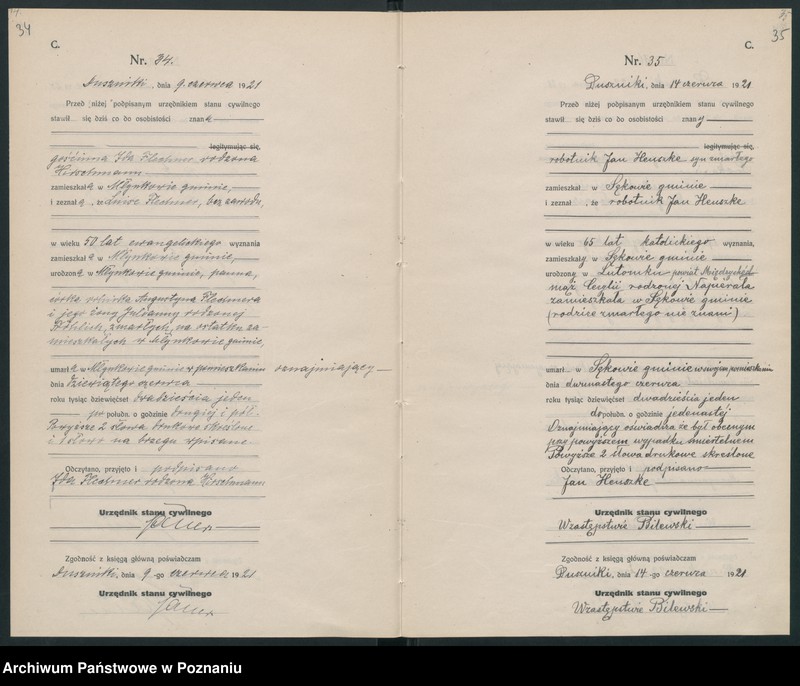 34
C.
Nr. 34.
Duszniki, dnia 9. czerwca 1921
Przed niżej podpisanym urzędnikiem stanu cywilnego
stawił się dziś co do osobistości znana
legitymując się,
gościnna Ida Flechner rodzona
Hirschmann
zamieszkała w Młynkowie gminie,
i zeznała, że Flechner, bez zawodu,
w wieku 50 lat ewangelickiego wyznania
zamieszkała w Młynkowie gminie,
urodzona w Młynkowie gminie, panna,
córka rolnika Augustyna Flechnera
i jego żony Julianny rodzonej
zmarłych, na ostatku za-
mieszkałych w Młynkowie gminie,
umarła w Młynkowie gminie w pomieszkaniu oznajmiający
dnia dziewiątego czerwca
roku tysiąc dziewięćset dwadzieścia jeden
po połudn. o godzinie drugiej i pół.
Powyższe 2 słowa drukowe skreślone
i 1 słowo na brzegu wpisane.
Odczytano, przyjęto i podpisano
Ida Flechner rodzona Hirschmann
Urzędnik stanu cywilnego
Zgodność z księgą główną poświadczam
Duszniki, dnia 9-go czerwca 1921
Urzędnik stanu cywilnego
35
C.
Nr. 35
Duszniki, dnia 14 czerwca 1921
Przed niżej podpisanym urzędnikiem stanu cywilnego
stawił się dziś co do osobistości znany
legitymując się,
robotnik Jan Heuszke syn zmarłego
zamieszkał w Sękowie gminie
i zeznał, że robotnik Jan Heuszke
w wieku 65 lat katolickiego wyznania,
zamieszkały w Sękowie gminie
urodzony w Lutomku powiat Międzychód
mąż Cecylii rodzonej Napierała
zamieszkała w Sękowie gminie
(rodzice zmarłego nie znani)
umarł w Sękowie gminie w swojem pomieszkaniu
dnia dwunastego czerwca
roku tysiąc dziewięćset dwadzieścia jeden
do połudn. o godzinie jedenastej
Oznajmiający oświadcza że był obecnym
przy powyższem wypadku śmiertelnem
Powyższe 2 słowa drukowe skreślone
Odczytano, przyjęto i podpisano
Jan Heuszke
Urzędnik stanu cywilnego
W zastępstwie Bilewski
Zgodność z księgą główną poświadczam
Duszniki, dnia 14-go czerwca 1921
Urzędnik stanu cywilnego
W zastępstwie Bilewski
Archiwum Państwowe w Poznaniu